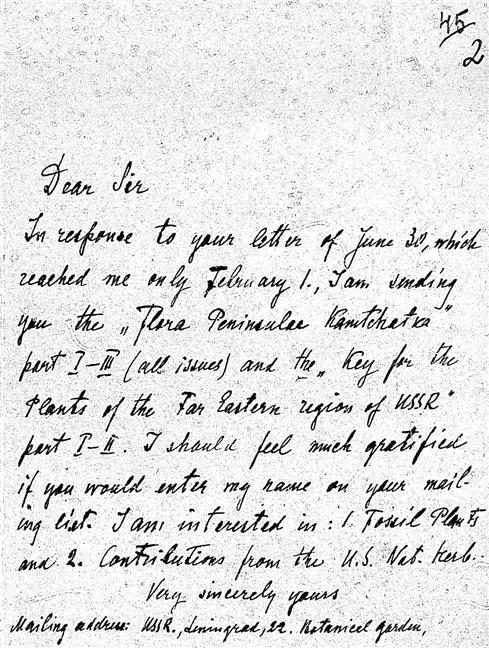 45
2
Dear Sir
In response to your letter of June 30, which
reached me only February 1., I am sending
you the „Flora Peninsulae Kamtchatka"
part I–III (all issues) and the „Key for the
Plants of the Far Eastern region of USSR"
part I–II. I should feel much gratified
if you would enter my name on your mail-
ing list. I am interested in: 1. Fossil Plants
and 2. Contributions from the U.S. Nat. Herb.
Very sincerely yours
Mailing address: USSR., Leningrad, 22. Botanical garden,